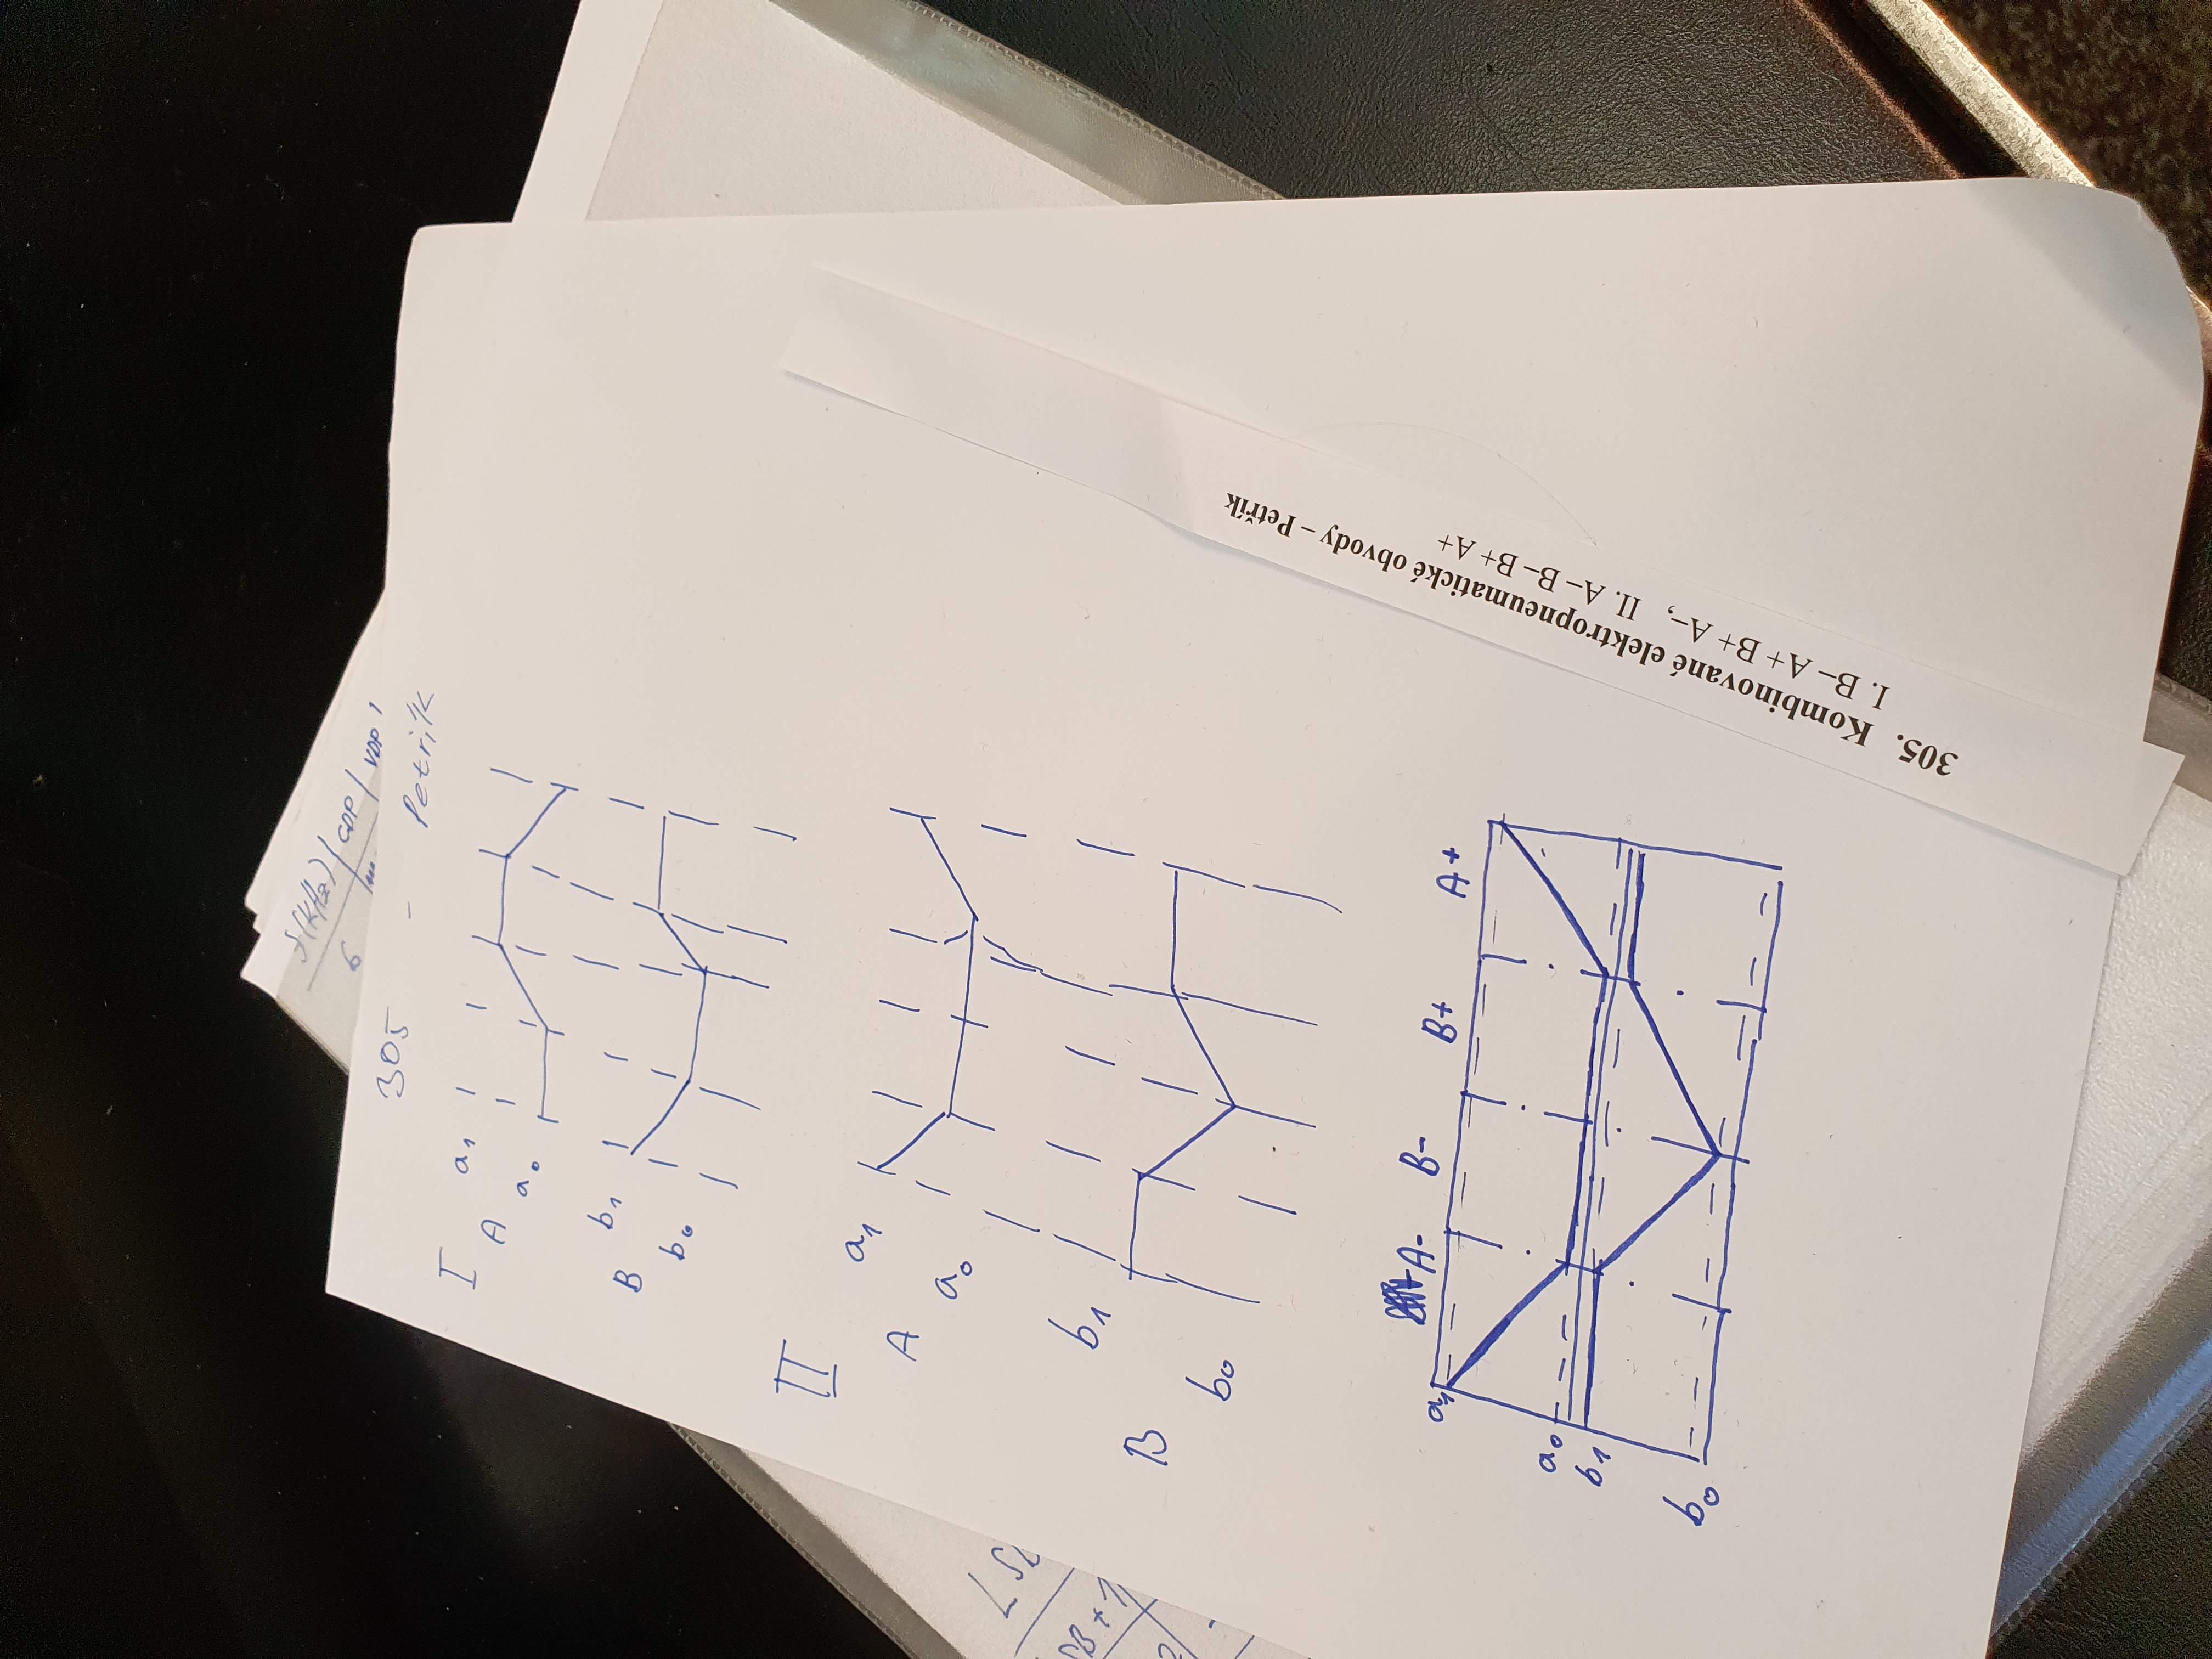 f(kHz) / GDP / VDP
6
305 - Petřík
I
a1
A
a0
b1
B
b0
II
a1
A
a0
b1
B
b0
A- B- B+ A+
a1
a0
b1
b0
305. Kombinované elektropneumatické obvody – Petřík
I. B– A+ B+ A–, II. A– B– B+ A+